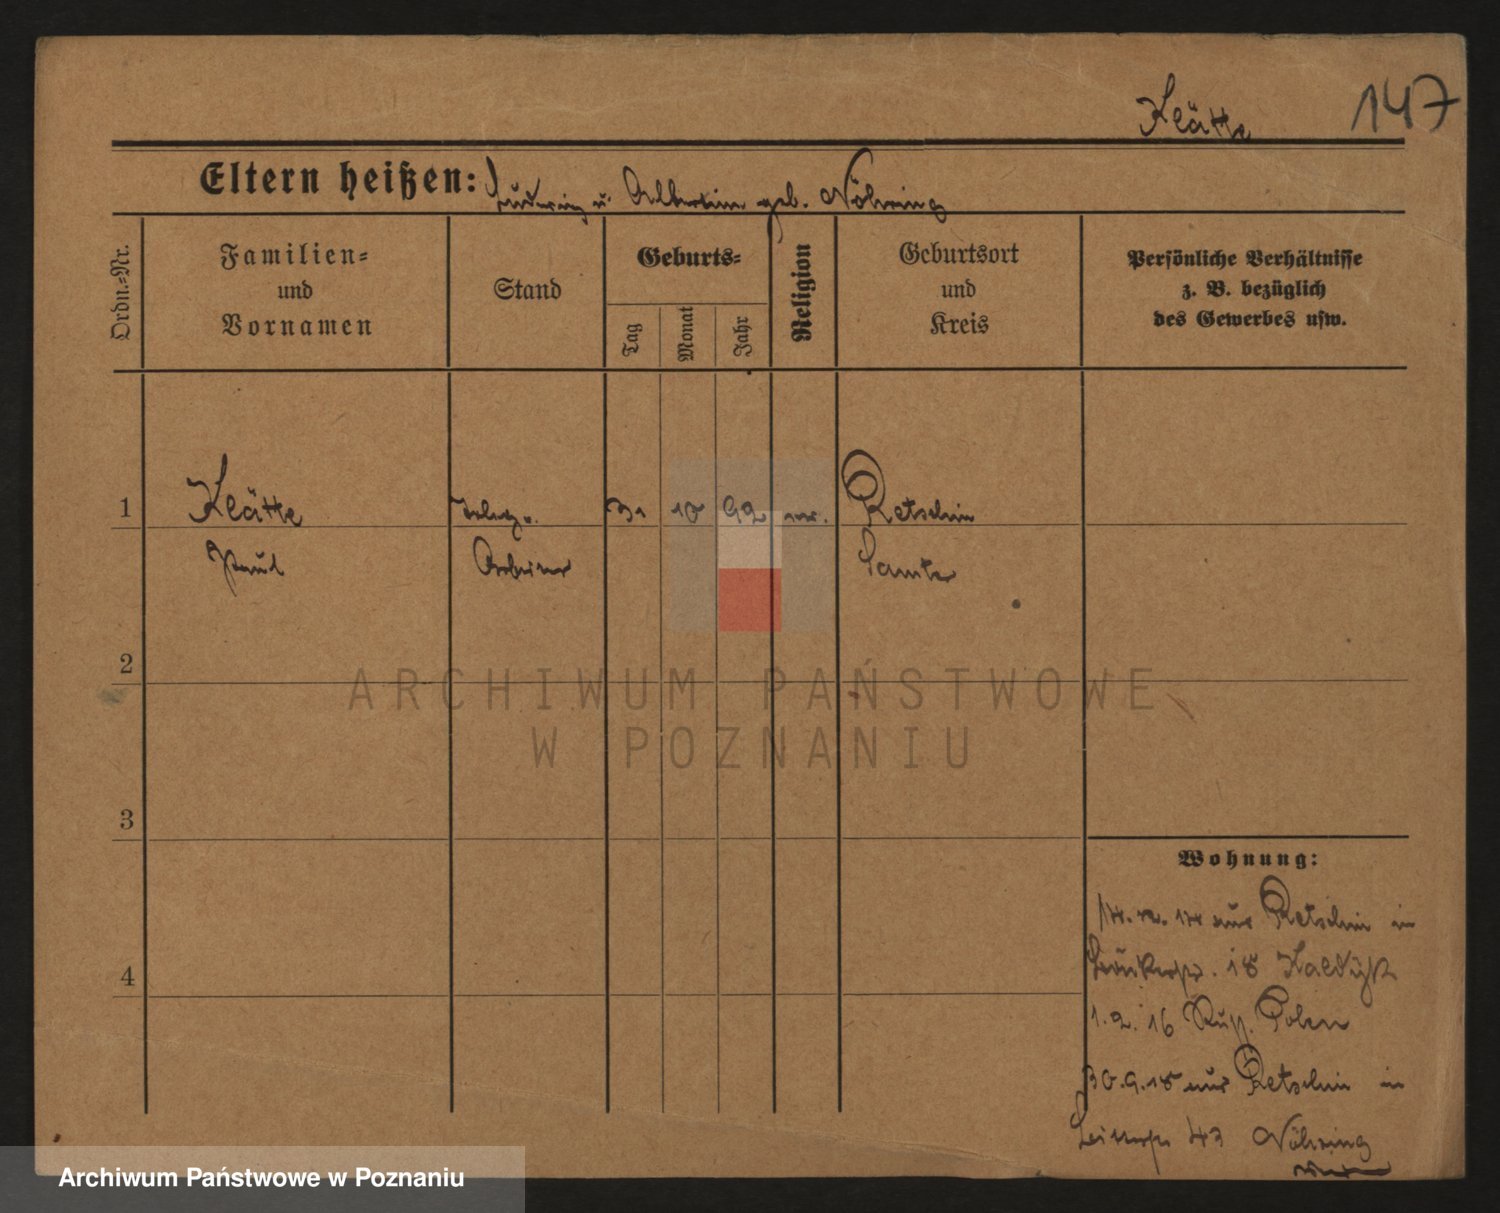 147
Klätte
Eltern heißen: Ludwig u. Albertine geb. Nöhring
Ordn.-Nr.
Familien-
und
Vornamen
Stand
Geburts-
Tag
Monat
Jahr
Religion
Geburtsort
und
Kreis
Persönliche Verhältnisse
z. B. bezüglich
des Gewerbes usw.
1 Klätte 31 10 92 ev. Retschin
Paul Arbeiter Samter
2
ARCHIWUM PAŃSTWOWE
W POZNANIU
3
Wohnung:
14 aus Retschin in
18
1.2.16 Russ. Polen
30.9.18 aus Retschin in
43 Nöhring
4
Archiwum Państwowe w Poznaniu